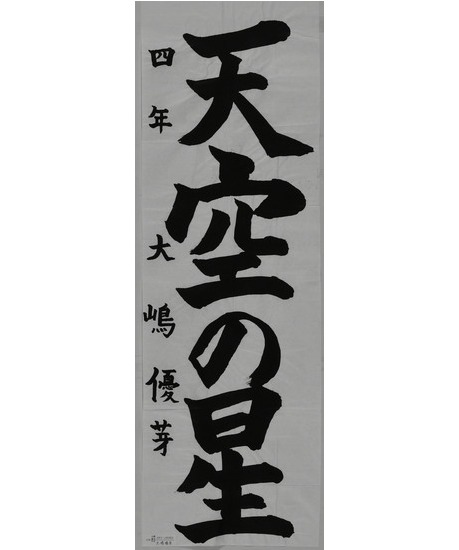 天空の星
四年 大嶋優芽